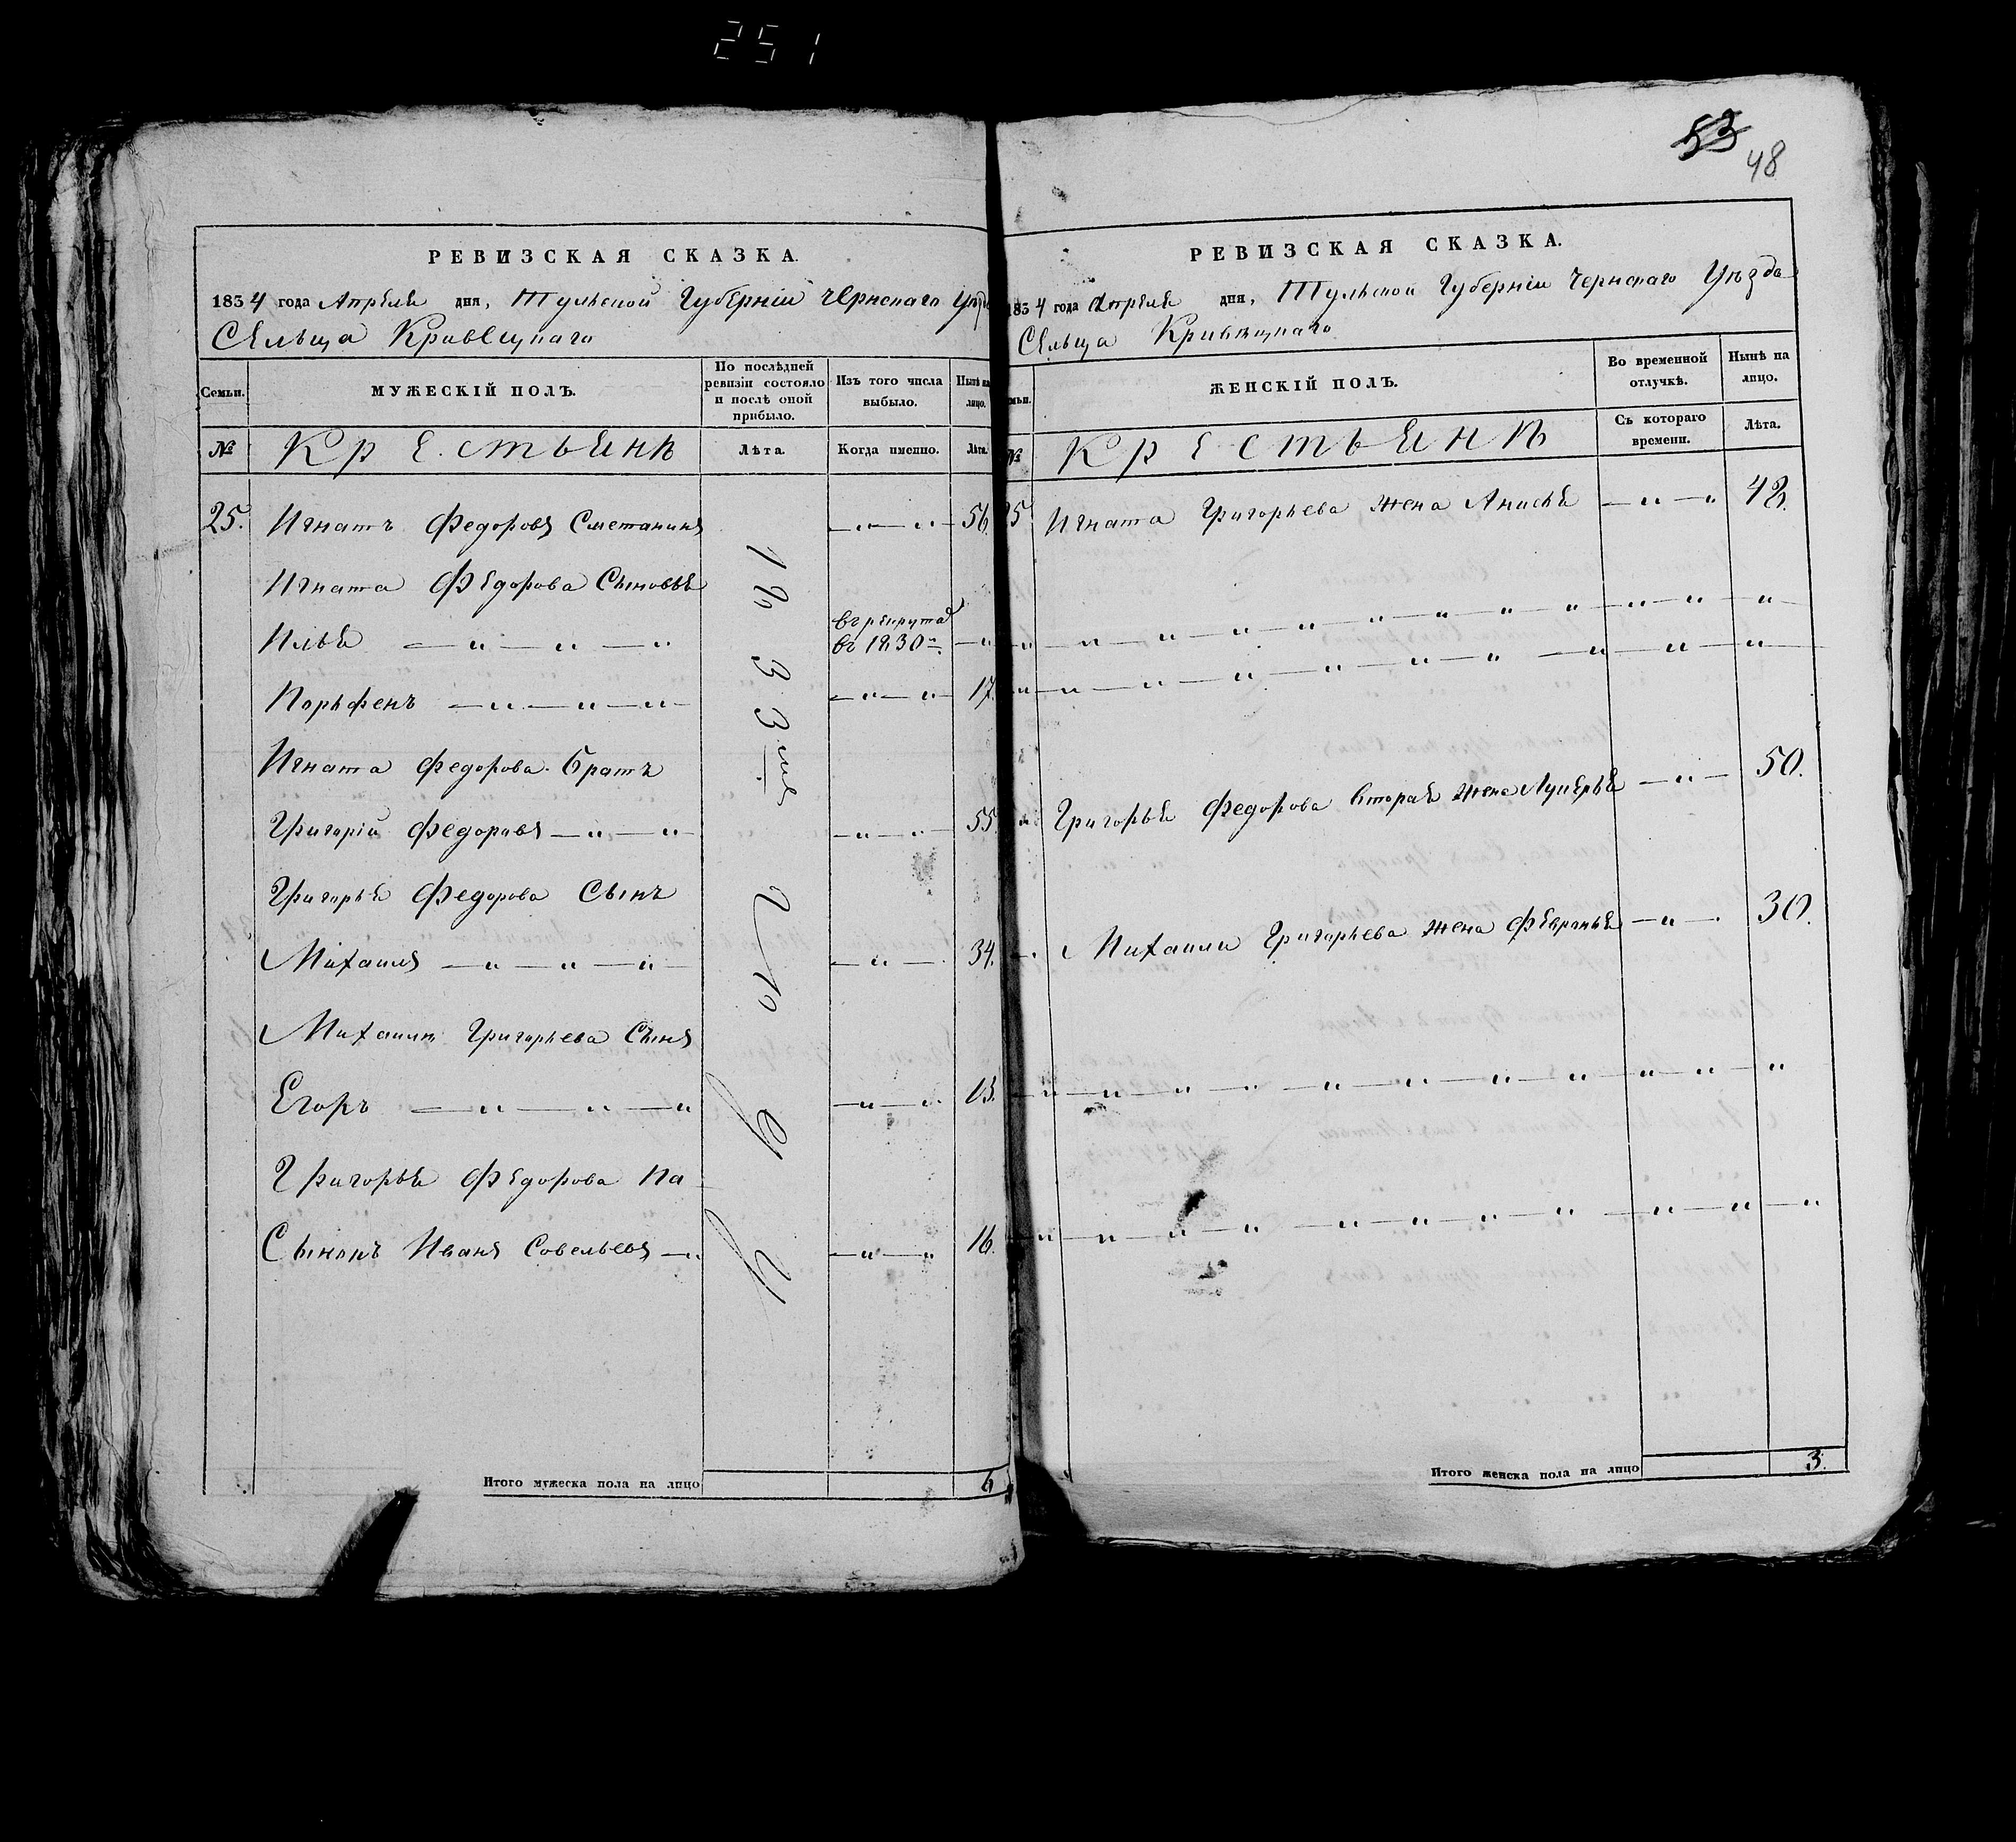 251
53
48
РЕВИЗСКАЯ СКАЗКА.
1834 года Апреля дня, Тульской Губернiи Чернскаго Уезда
Сельца Кривецкаго
Семьи. МУЖЕСКIЙ ПОЛЪ. По послѣдней ревизiи состояло и послѣ оной прибыло. Изъ того числа выбыло. Нынѣ на лицо.
№ Крестьяне Лѣта. Когда именно. Лѣта.
25. Игнатъ Федоровъ Сметанинъ —"—" 56.
Игната Федорова Сыновья
Илья —"—"—" въ рекрута въ 1830мъ —"
Парфенъ —"—"—" —"—" 17.
Игната Федорова Братъ
Григорiй Федоровъ —"—" —"—" 55.
Григорья Федорова Сынъ
Михаилъ —"—"—" —"— 34.
Михаила Григорьева Сынъ
Егоръ —"—"—" —"—" 13.
Григорья Федорова Па
Сынокъ Иванъ Савельевъ —" —"—" 16.
1833
Итого мужеска пола на лицо 6
РЕВИЗСКАЯ СКАЗКА.
1834 года Апреля дня, Тульской Губернiи Чернскаго Уезда
Сельца Кривецкаго
Семьи. ЖЕНСКIЙ ПОЛЪ. Во временной отлучкѣ. Нынѣ на лицо.
№ Крестьяне Съ котораго времени. Лѣта.
25 Игната Григорьева жена Анисья —"—" 48.
Григорья Федорова вторая жена Лукерья —"— 50.
Михаила Григорьева жена Февронья —"— 30.
Итого женска пола на лицо 3.